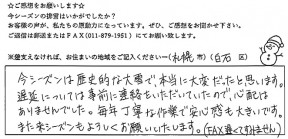 ☆ご感想をお願いします☆
今シーズンの排雪はいかがでしたか?
お客様の声が、私たちの原動力になっています。ぜひ、ご感想をお聞かせ下さい。
ご返信は郵送またはFAX(011-879-1951)にてお願い致します。
※差支えなければ、お住まいの地域をご記入ください→(札幌 市)(白石 区)
今シーズンは歴史的な大雪で、本当に大変だったと思います。
遅延については事前に連絡をいただいていたので、心配は
ありませんでした。毎年丁寧な作業で安心感も大きいです。
また来シーズンもよろしくお願いいたします。(FAX遅くてすみません)